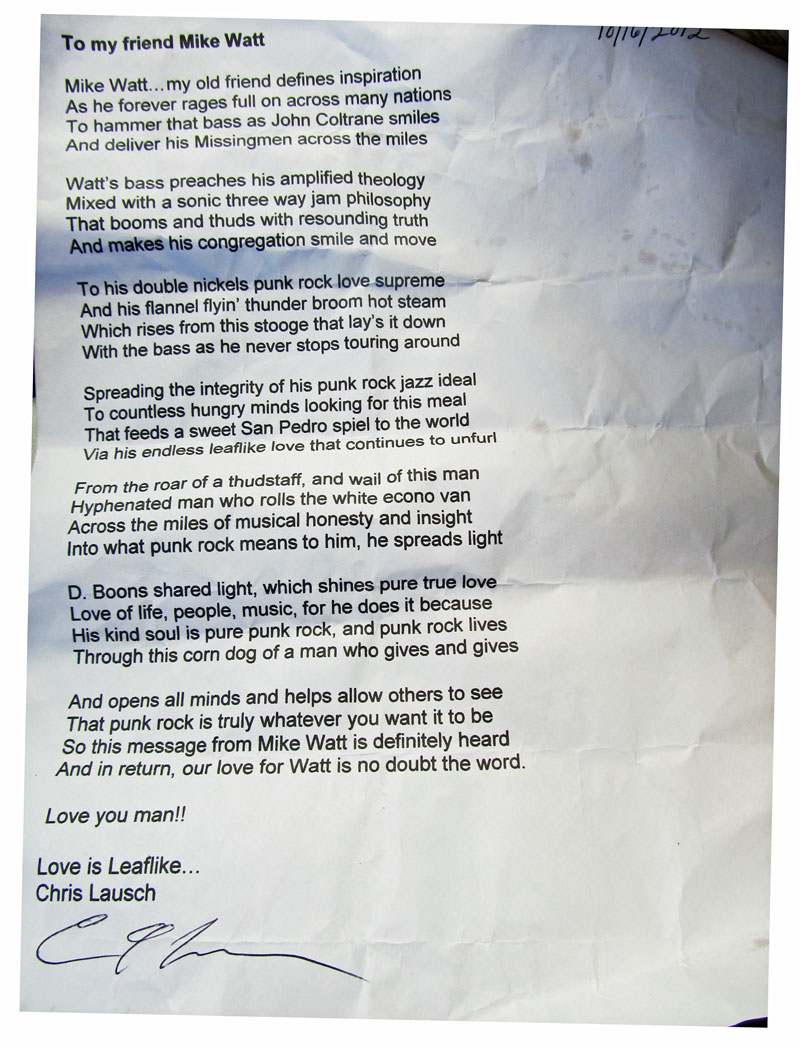 10/16/2012
To my friend Mike Watt
Mike Watt…my old friend defines inspiration
As he forever rages full on across many nations
To hammer that bass as John Coltrane smiles
And deliver his Missingmen across the miles
Watt's bass preaches his amplified theology
Mixed with a sonic three way jam philosophy
That booms and thuds with resounding truth
And makes his congregation smile and move
To his double nickels punk rock love supreme
And his flannel flyin' thunder broom hot steam
Which rises from this stooge that lay's it down
With the bass as he never stops touring around
Spreading the integrity of his punk rock jazz ideal
To countless hungry minds looking for this meal
That feeds a sweet San Pedro spiel to the world
Via his endless leaflike love that continues to unfurl
From the roar of a thudstaff, and wail of this man
Hyphenated man who rolls the white econo van
Across the miles of musical honesty and insight
Into what punk rock means to him, he spreads light
D. Boons shared light, which shines pure true love
Love of life, people, music, for he does it because
His kind soul is pure punk rock, and punk rock lives
Through this corn dog of a man who gives and gives
And opens all minds and helps allow others to see
That punk rock is truly whatever you want it to be
So this message from Mike Watt is definitely heard
And in return, our love for Watt is no doubt the word.
Love you man!!
Love is Leaflike…
Chris Lausch